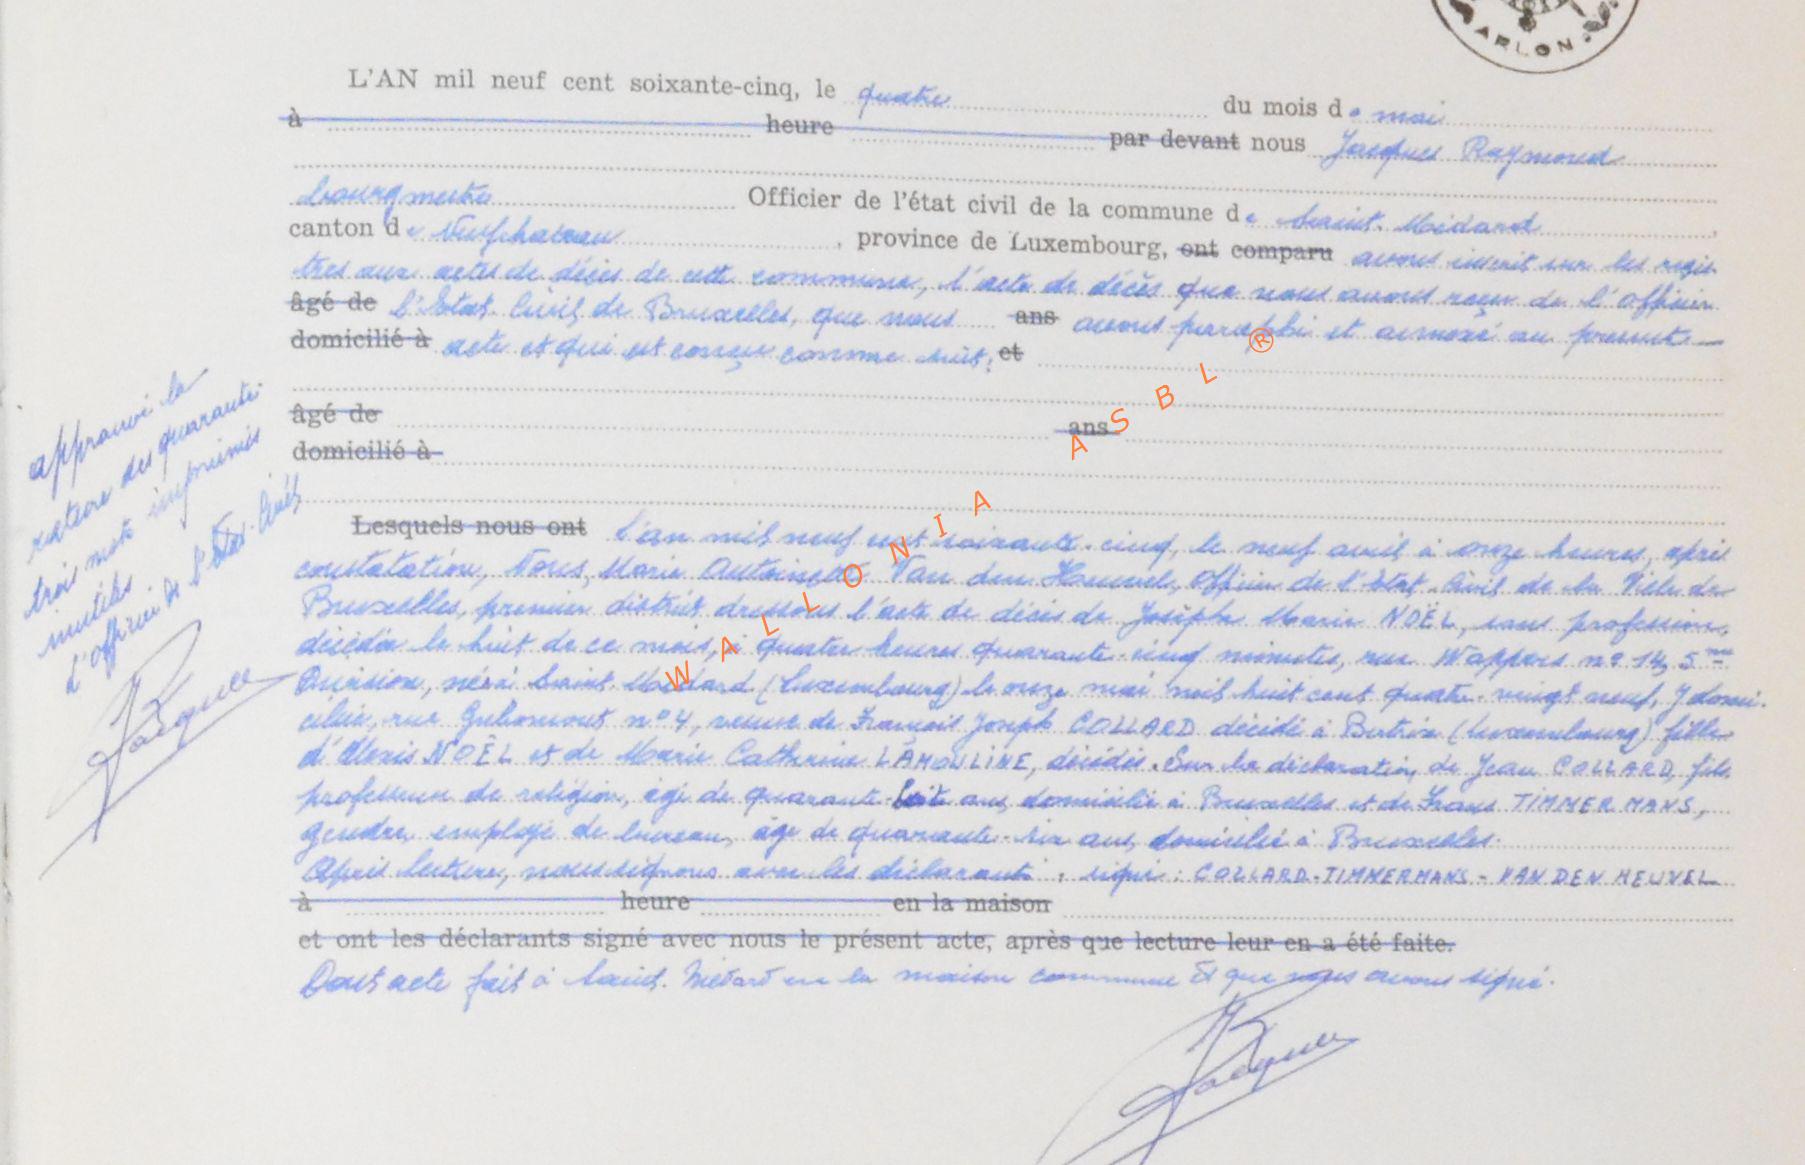 ARLON
L'AN mil neuf cent soixante-cinq, le quatre du mois de mai
à heure par devant nous Jacques Raymond
bourgmestre Officier de l'état civil de la commune de Saint-Médard,
canton de Neufchateau, province de Luxembourg, ont comparu avons inscrit sur les regis-
tres aux actes de décès de cette commune, l'acte de décès que nous avons reçu de l'officier
âgé de l'Etat-Civil de Bruxelles, que nous ans avons paraphé et annexé au présent
domicilié à acte et qui est conçu comme suit: et
âgé de ans
domicilié à
approuvé la
rature des quarante
trois mots imprimés
inutiles
L'officier de l'Etat-Civil
Jacques
Lesquels nous ont L'an mil neuf cent soixante-cinq, le neuf avril à onze heures, après
constatation, Nous, Marie Antoinette Van den Heuvel, officier de l'Etat-Civil de la Ville de
Bruxelles, premier district dressons l'acte de décès de Josèphe Marie NOËL, sans profession,
décédée le huit de ce mois, à quatre heures quarante-cinq minutes, rue Wappers n° 14, 5me
Division, née à Saint-Médard (Luxembourg) le onze mai mil huit cent quatre-vingt neuf, y domi-
ciliée, rue n° 4, veuve de François Joseph COLLARD décédé à Bertrix (Luxembourg) fille
d'Alexis NOËL et de Marie Catherine LAMOULINE, décédés. Sur la déclaration de Jean COLLARD, fils
professeur de religion, âgé de quarante-huit ans, domicilié à Bruxelles et de Frans TIMMERMANS,
gendre, employé de bureau, âgé de quarante-six ans, domicilié à Bruxelles.
Après lecture, nous signons avec les déclarants. signé: COLLARD-TIMMERMANS-VAN DEN HEUVEL
à heure en la maison
et ont les déclarants signé avec nous le présent acte, après que lecture leur en a été faite.
Dont acte fait à Saint-Médard en la maison commune Et que nous avons signé.
Jacques
WALLONIA ASBL ®